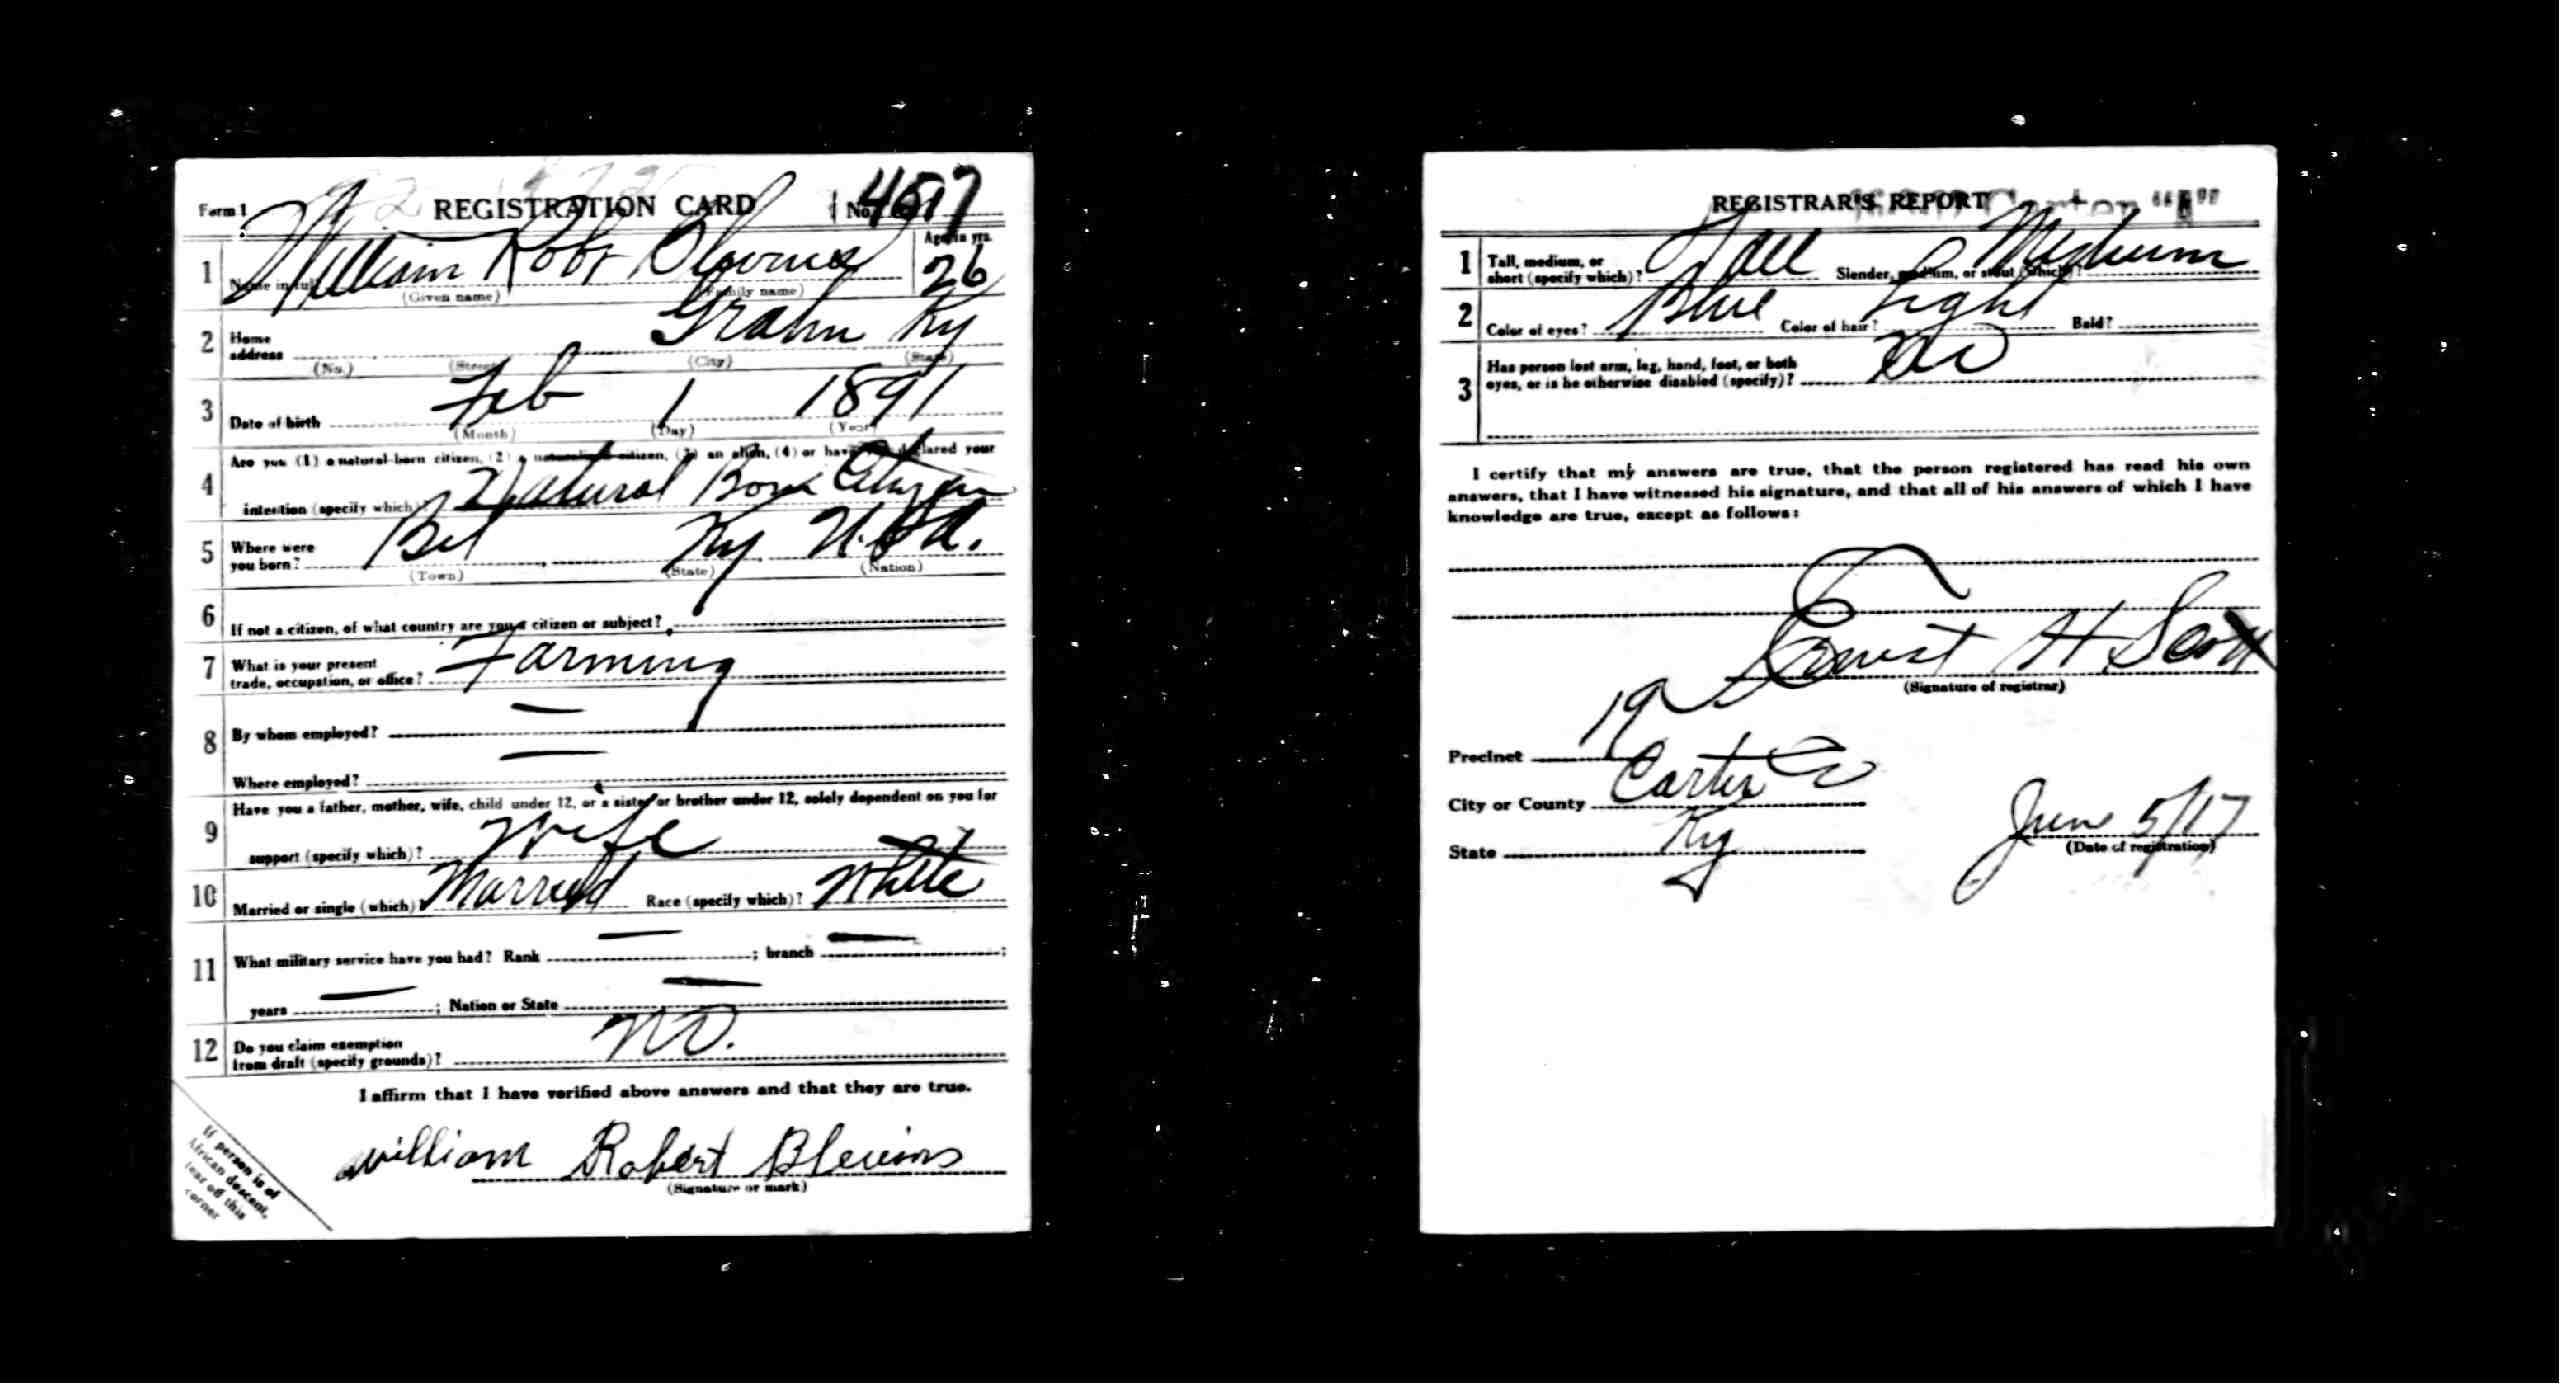 Form 1 REGISTRATION CARD No. 4517
1 Name in full William Robt Blevins Age, in yrs. 26
(Given name) (Family name)
2 Home address Grahn Ky
(No.) (Street) (City) (State)
3 Date of birth Feb 1 1891
(Month) (Day) (Year)
4 Are you (1) a natural-born citizen, (2) a naturalized citizen, (3) an alien, (4) or have you declared your
intention (specify which)? Natural Born Citizen
5 Where were
you born? Bet Ky U.S.A.
(Town) (State) (Nation)
6 If not a citizen, of what country are you a citizen or subject?
7 What is your present
trade, occupation, or office? Farming
8 By whom employed? —
Where employed? —
9 Have you a father, mother, wife, child under 12, or a sister or brother under 12, solely dependent on you for
support (specify which)? Wife
10 Married or single (which)? Married Race (specify which)? White
11 What military service have you had? Rank — ; branch — ;
years — ; Nation or State —
12 Do you claim exemption
from draft (specify grounds)? No.
I affirm that I have verified above answers and that they are true.
William Robert Blevins
(Signature or mark)
If person is of
African descent,
tear off this
corner
REGISTRAR'S REPORT
1 Tall, medium, or
short (specify which)? Tall Slender, medium, or stout (which)? Medium
2 Color of eyes? Blue Color of hair? Light Bald?
3 Has person lost arm, leg, hand, foot, or both
eyes, or is he otherwise disabled (specify)? No
I certify that my answers are true, that the person registered has read his own
answers, that I have witnessed his signature, and that all of his answers of which I have
knowledge are true, except as follows:
Ernest H Scott
(Signature of registrar)
Precinct 19
City or County Carter Co
State Ky June 5/17
(Date of registration)